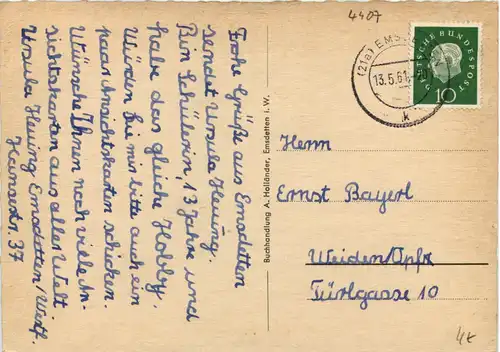 4407
(21a) EMSDE
13.5.61
k
DEUTSCHE BUNDESPOST
10
Frohe Grüße aus Emsdetten
sendet Ursula Heuing.
Bin Schülerin, 13 Jahre und
habe das gleiche Hobby.
Würden Sie mir bitte auch ein
paar Ansichtskarten schicken.
Wünsche Ihnen noch viele An-
sichtskarten aus aller Welt.
Ursula Heuing Emsdetten/Westf.
37
Buchhandlung A. Holländer, Emsdetten i. W.
Herrn
Ernst Bayerl
Weiden/Opfz
Türlgasse 10